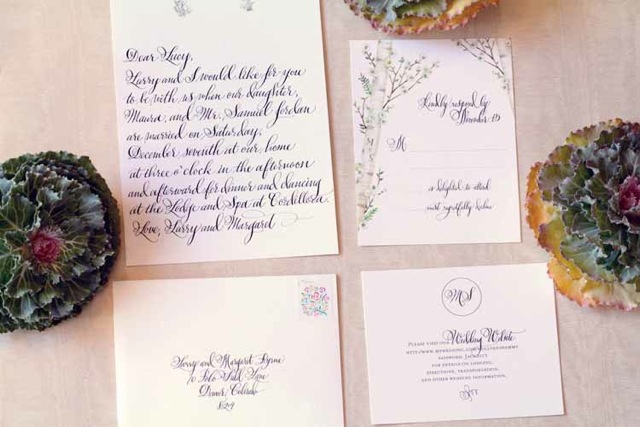 Dear Lucy,
Larry and I would like for you
to be with us when our daughter,
Maura, and Mr. Samuel Jordan
are married on Saturday,
December seventh at our home
at three o'clock in the afternoon
and afterward for dinner and dancing
at the Lodge and Spa at Cordillera.
Love, Larry and Margaret
Kindly respond by
November 15
M
is delighted to attend
must regretfully decline
and Margaret
Denver, Colorado
MS
Wedding Website
Please visit our
password:
for details on lodging,
directions, transportation,
and other wedding information.